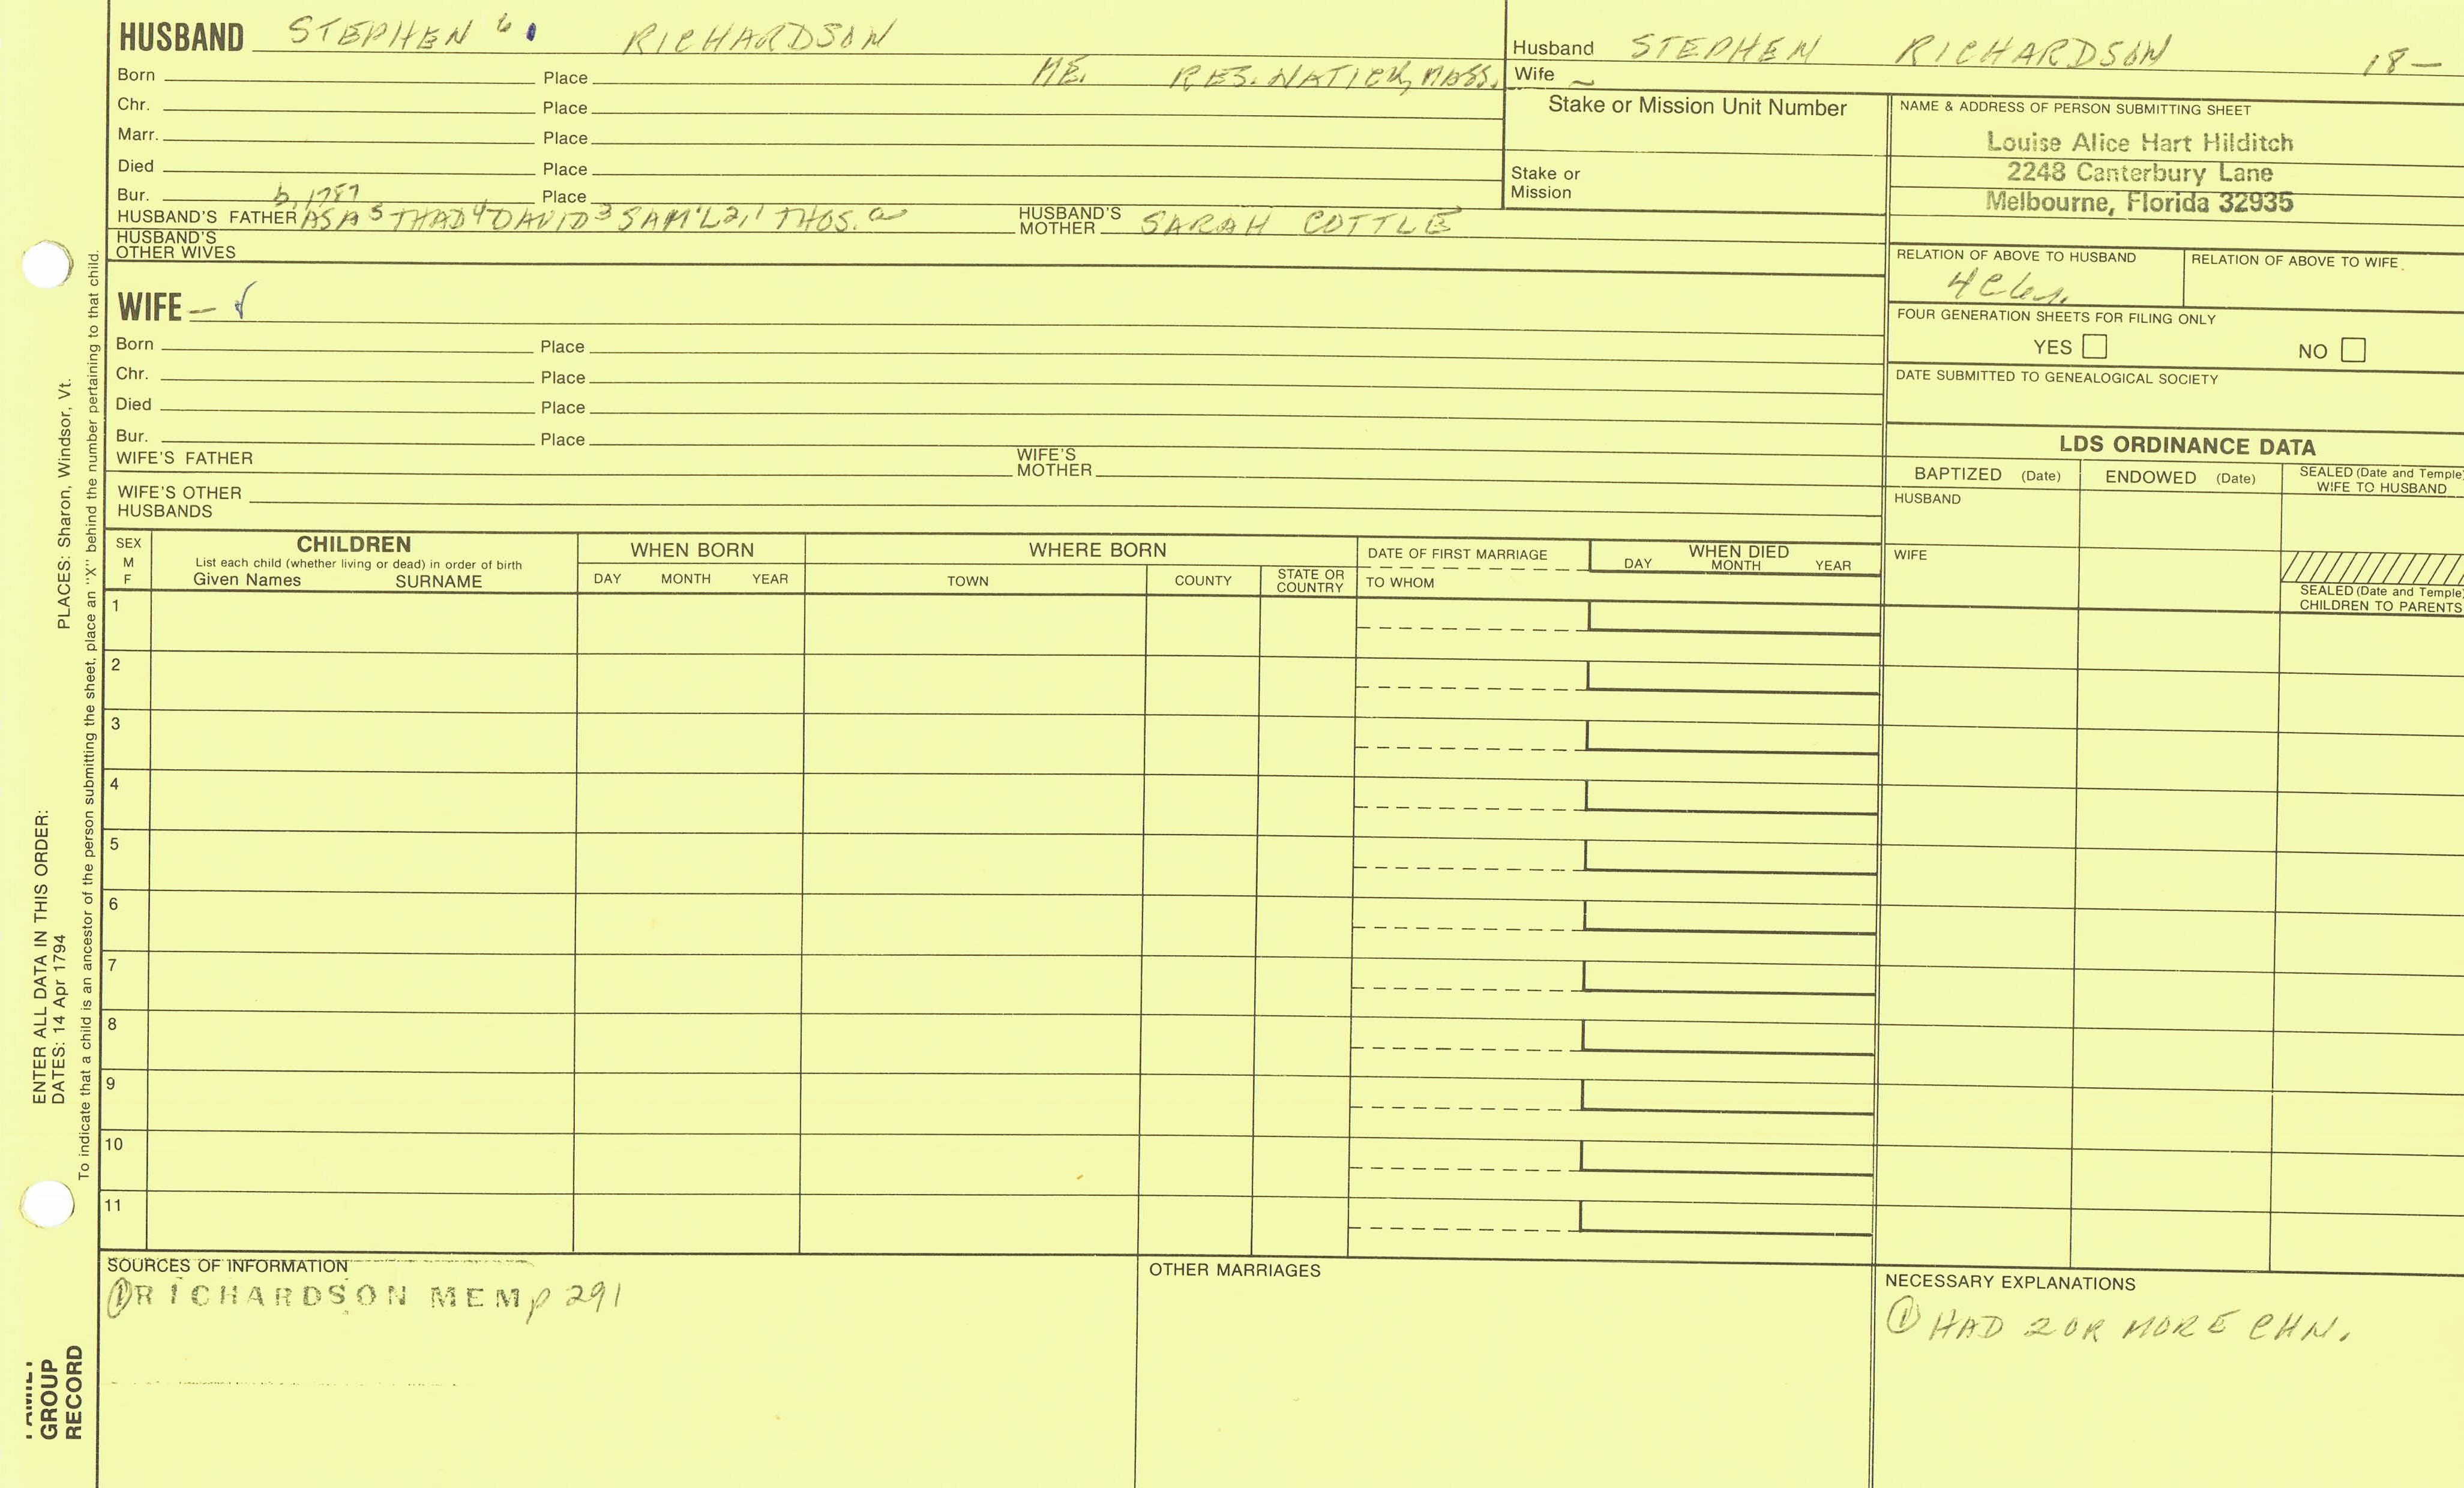 HUSBAND STEPHEN 6 RICHARDSON
Born Place ME. RES. NATICK, MASS.
Chr. Place
Marr. Place
Died Place
Bur. b. 1787 Place
HUSBAND'S FATHER ASA 5 THAD 4 DAVID 3 SAM'L 2, 1 THOS. HUSBAND'S MOTHER SARAH COTTLE
HUSBAND'S OTHER WIVES
WIFE –
Born Place
Chr. Place
Died Place
Bur. Place
WIFE'S FATHER WIFE'S MOTHER
WIFE'S OTHER HUSBANDS
Husband STEPHEN RICHARDSON 18–
Wife ~
Stake or Mission Unit Number
Stake or Mission
NAME & ADDRESS OF PERSON SUBMITTING SHEET
Louise Alice Hart Hilditch
2248 Canterbury Lane
Melbourne, Florida 32935
RELATION OF ABOVE TO HUSBAND RELATION OF ABOVE TO WIFE
FOUR GENERATION SHEETS FOR FILING ONLY
YES NO
DATE SUBMITTED TO GENEALOGICAL SOCIETY
LDS ORDINANCE DATA
BAPTIZED (Date) ENDOWED (Date) SEALED (Date and Temple) WIFE TO HUSBAND
HUSBAND
WIFE
SEALED (Date and Temple) CHILDREN TO PARENTS
SEX M F
CHILDREN
List each child (whether living or dead) in order of birth
Given Names SURNAME
WHEN BORN
DAY MONTH YEAR
WHERE BORN
TOWN COUNTY STATE OR COUNTRY
DATE OF FIRST MARRIAGE
TO WHOM
WHEN DIED
DAY MONTH YEAR
1
2
3
4
5
6
7
8
9
10
11
SOURCES OF INFORMATION
① RICHARDSON MEM p 291
OTHER MARRIAGES
NECESSARY EXPLANATIONS
① HAD 2 OR MORE CHN.
ENTER ALL DATA IN THIS ORDER:
DATES: 14 Apr 1794 PLACES: Sharon, Windsor, Vt.
To indicate that a child is an ancestor of the person submitting the sheet, place an "X" behind the number pertaining to that child.
FAMILY
GROUP
RECORD